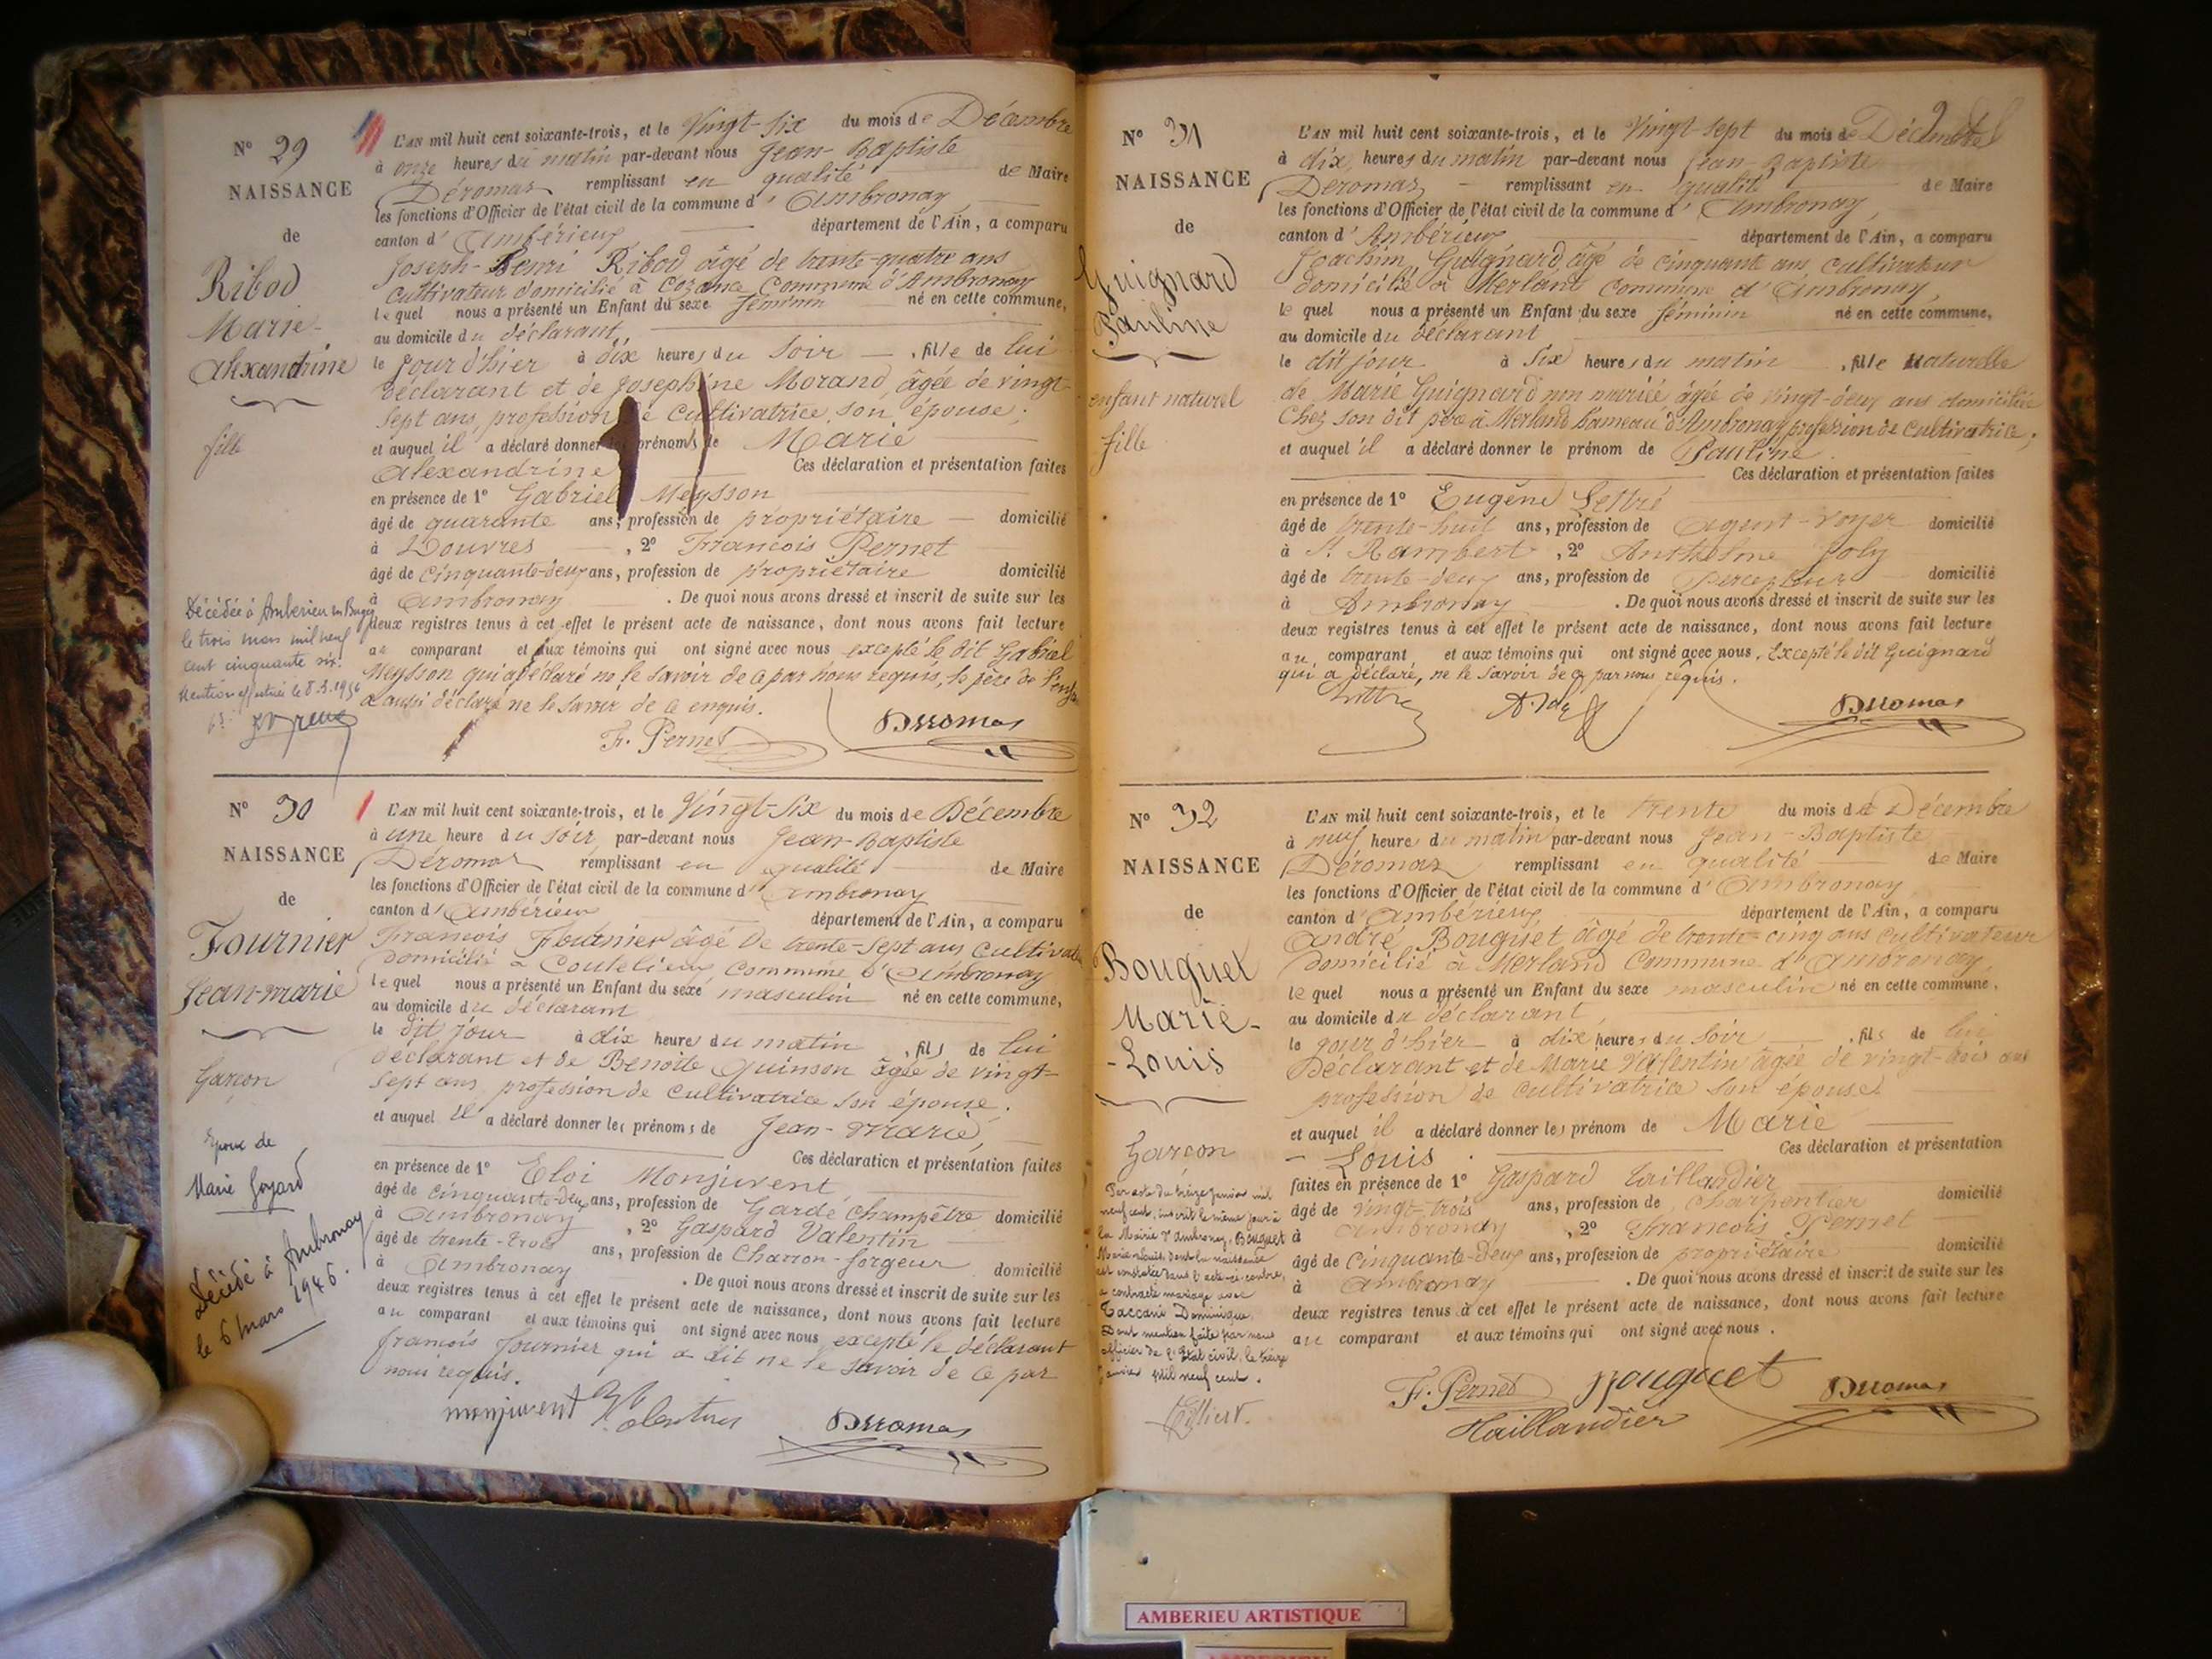 N° 29
NAISSANCE
de
Ribod
Marie-
Alexandrine
fille
Décédée à Ambérieu en Bugey
le trois mars mil neuf
cent cinquante six.
Mention effectuée le 8.3.1956
L'AN mil huit cent soixante-trois, et le Vingt-six du mois de Décembre
à onze heures du matin par-devant nous Jean-Baptiste
Déromas remplissant en qualité de Maire
les fonctions d'Officier de l'état civil de la commune d' Ambronay
canton d' Ambérieux département de l'Ain, a comparu
Joseph-Henri Ribod âgé de trente-quatre ans
cultivateur domicilié à Cozance Commune d'Ambronay
lequel nous a présenté un Enfant du sexe féminin né en cette commune,
au domicile du déclarant,
le jour d'hier à dix heures du soir , fille de lui
déclarant et de Josephine Morand, âgée de vingt-
sept ans, profession de cultivatrice son épouse;
et auquel il a déclaré donner les prénoms de Marie
Alexandrine Ces déclaration et présentation faites
en présence de 1° Gabriel Meysson
âgé de quarante ans, profession de propriétaire domicilié
à Douvres , 2° François Pernet
âgé de cinquante-deux ans, profession de propriétaire domicilié
à Ambronay . De quoi nous avons dressé et inscrit de suite sur les
deux registres tenus à cet effet le présent acte de naissance, dont nous avons fait lecture
au comparant et aux témoins qui ont signé avec nous excepté le dit Gabriel
Meysson qui a déclaré ne le savoir de ce par nous requis, le père de l'enfa
a aussi déclaré ne le savoir de ce enquis.
F. Pernet Déromas
N° 30
NAISSANCE
de
Fournier
Jean-marie
Garçon
Epoux de
Marie Goyard
Décédé à Ambronay
le 6 mars 1946.
L'AN mil huit cent soixante-trois, et le Vingt-six du mois de Décembre
à une heure du soir, par-devant nous Jean-Baptiste
Déromas remplissant en qualité de Maire
les fonctions d'Officier de l'état civil de la commune d' Ambronay
canton d' Ambérieu département de l'Ain, a comparu
François Fournier âgé de trente-sept ans cultivat
domicilié à Coutelieux Commune d'Ambronay
lequel nous a présenté un Enfant du sexe masculin né en cette commune,
au domicile du déclarant
le dit jour à dix heures du matin , fils de lui
déclarant et de Benoite Quinson âgée de vingt-
sept ans, profession de cultivatrice son épouse.
et auquel il a déclaré donner les prénoms de Jean-Marie,
Ces déclaration et présentation faites
en présence de 1° Eloi Monjuvent
âgé de cinquante-deux ans, profession de Garde champêtre domicilié
à Ambronay , 2° Gaspard Valentin
âgé de trente-trois ans, profession de Charron-forgeur domicilié
à Ambronay . De quoi nous avons dressé et inscrit de suite sur les
deux registres tenus à cet effet le présent acte de naissance, dont nous avons fait lecture
au comparant et aux témoins qui ont signé avec nous excepté le déclarant
francois fournier qui a dit ne le savoir de ce par
nous requis.
monjuvent Valentin Déromas
N° 31
NAISSANCE
de
Guignard
Pauline
enfant naturel
fille
L'AN mil huit cent soixante-trois, et le Vingt-sept du mois de Décembre
à dix heures du matin par-devant nous Jean-Baptiste
Déromas remplissant en qualité de Maire
les fonctions d'Officier de l'état civil de la commune d' Ambronay
canton d' Ambérieux département de l'Ain, a comparu
Joachim Guignard âgé de cinquant ans, cultivateur
domicilié à Merland Commune d'Ambronay,
le quel nous a présenté un Enfant du sexe féminin né en cette commune,
au domicile du déclarant
le dit jour à six heures du matin , fille Naturelle
de Marie Guignard non mariée âgée de vingt-deux ans domiciliée
Chez son dit père à Merland hameau d'Ambronay profession de cultivatrice;
et auquel il a déclaré donner le prénom de Pauline
Ces déclaration et présentation faites
en présence de 1° Eugène
âgé de trente-huit ans, profession de Agent-voyer domicilié
à St Rambert , 2° Anthelme Joly
âgé de trente-deux ans, profession de Percepteur domicilié
à Ambronay . De quoi nous avons dressé et inscrit de suite sur les
deux registres tenus à cet effet le présent acte de naissance, dont nous avons fait lecture
au comparant et aux témoins qui ont signé avec nous. Excepté le dit Guignard
qui a déclaré, ne le savoir de ce par nous requis.
Déromas
N° 32
NAISSANCE
de
Bouguet
Marie-
-Louis
Garçon
Par acte du treize janvier mil
neuf cent, inscrit le même jour à
la Mairie d'Ambronay, Bouguet
Marie-Louis, dont la naissance
est constatée dans l'acte ci-contre,
a contracté mariage avec
Taccani Dominique.
Dont mention faite par nous
officier de l'Etat civil, le treize
janvier mil neuf cent.
L'AN mil huit cent soixante-trois, et le trente du mois de Décembre
à neuf heures du matin par-devant nous Jean-Baptiste
Déromas remplissant en qualité de Maire
les fonctions d'Officier de l'état civil de la commune d' Ambronay
canton d' Ambérieux département de l'Ain, a comparu
André Bouguet âgé de trente-cinq ans cultivateur
domicilié à Merland Commune d'Ambronay
le quel nous a présenté un Enfant du sexe masculin né en cette commune,
au domicile du déclarant,
le jour d'hier à dix heures du soir , fils de lui
Déclarant et de Marie Valentin âgée de vingt-trois ans
profession de cultivatrice son épouse.
et auquel il a déclaré donner les prénom de Marie
- Louis . Ces déclaration et présentation
faites en présence de 1° Gaspard Taillandier
âgé de vingt-trois ans, profession de charpentier domicilié
à Ambronay , 2° François Pernet
âgé de cinquante-deux ans, profession de propriétaire domicilié
à Ambronay . De quoi nous avons dressé et inscrit de suite sur les
deux registres tenus à cet effet le présent acte de naissance, dont nous avons fait lecture
au comparant et aux témoins qui ont signé avec nous.
F. Pernet Bouguet Déromas
Taillandier
AMBERIEU ARTISTIQUE